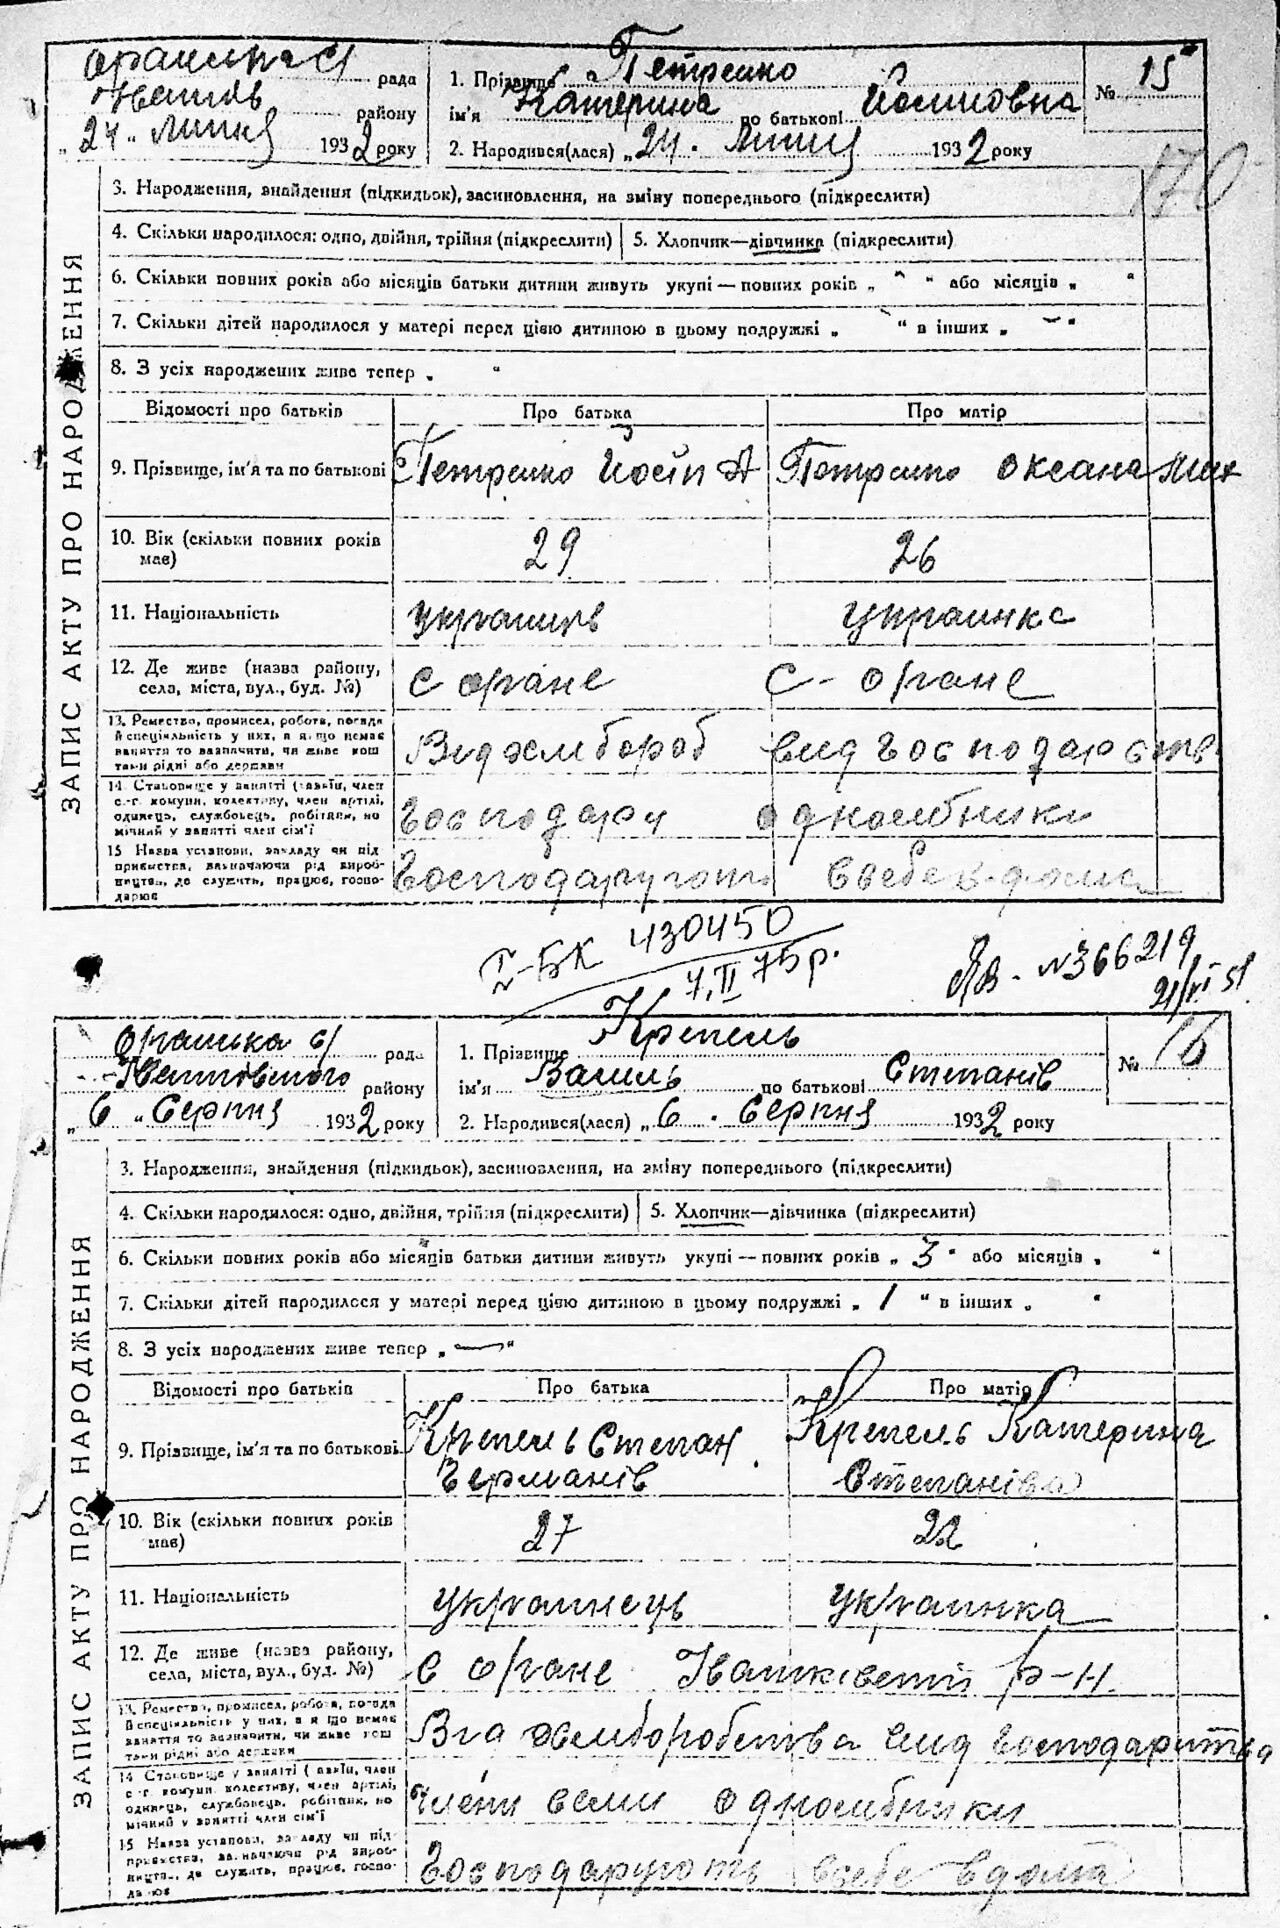 рада
району
"24" липня 1932 року
1. Прізвище Петренко
ім'я Катерина по батькові Йосиповна
№ 15
2. Народився(лася) "24. липня 1932 року
170
ЗАПИС АКТУ ПРО НАРОДЖЕННЯ
3. Народження, знайдення (підкидьок), засиновлення, на зміну попереднього (підкреслити)
4. Скільки народилося: одно, двійня, трійня (підкреслити) 5. Хлопчик—дівчинка (підкреслити)
6. Скільки повних років або місяців батьки дитини живуть укупі — повних років „ “ або місяців „ “
7. Скільки дітей народилося у матері перед цією дитиною в цьому подружжі „ “ в інших „ “
8. З усіх народжених живе тепер „ “
Відомості про батьків Про батька Про матір
9. Прізвище, ім'я та по батькові Петренко Йосип А Петренко Оксана Мих
10. Вік (скільки повних років має) 29 26
11. Національність українць украинка
12. Де живе (назва району, села, міста, вул., буд. №) с оране с- оране
13. Ремество, промисел, робота, посада
й спеціяльність у них, а якщо немає
заняття то зазначити, чи живе кош
тами рідні або держави
14. Становище у занятті (хазяїн, член
с.-г. комуни, колективу, член артілі,
одинець, службовець, робітник, по
мічний у занятті член сім'ї
господари одноосібники
15 Назва установи, закладу чи під
приємства, зазначаючи рід вироб-
ництва, де служить, працює, госпо-
дарює
I-БК 430450
7.II 75р.
№366219
21/VI 51
рада
Іванківського району
"6" Серпня 1932 року
1. Прізвище Крепель
ім'я Василь по батькові Степанів
№ 16
2. Народився(лася) "6. Серпня 1932 року
ЗАПИС АКТУ ПРО НАРОДЖЕННЯ
3. Народження, знайдення (підкидьок), засиновлення, на зміну попереднього (підкреслити)
4. Скільки народилося: одно, двійня, трійня (підкреслити) 5. Хлопчик—дівчинка (підкреслити)
6. Скільки повних років або місяців батьки дитини живуть укупі — повних років „ 3 “ або місяців „ “
7. Скільки дітей народилося у матері перед цією дитиною в цьому подружжі „ 1 “ в інших „ “
8. З усіх народжених живе тепер „ — “
Відомості про батьків Про батька Про матір
9. Прізвище, ім'я та по батькові Крепель Степан Крепель Катерина
Германів Степаніва
10. Вік (скільки повних років має) 27 22
11. Національність українець українка
12. Де живе (назва району, села, міста, вул., буд. №) с оране Іванківський р-н
13. Ремество, промисел, робота, посада
й спеціяльність у них, а якщо немає
заняття то зазначити, чи живе кош
тами рідні або держави
Від хліборобства від господарства
14 Становище у занятті (хазяїн, член
с.-г. комуни, колективу, член артілі,
одинець, службовець, робітник, по
мічний у занятті член сім'ї
члени семи одноосібники
15 Назва установи, закладу чи під-
приємства, зазначаючи рід вироб-
ництва, де служить, працює, госпо-
дарює
Господарують всебе вдома